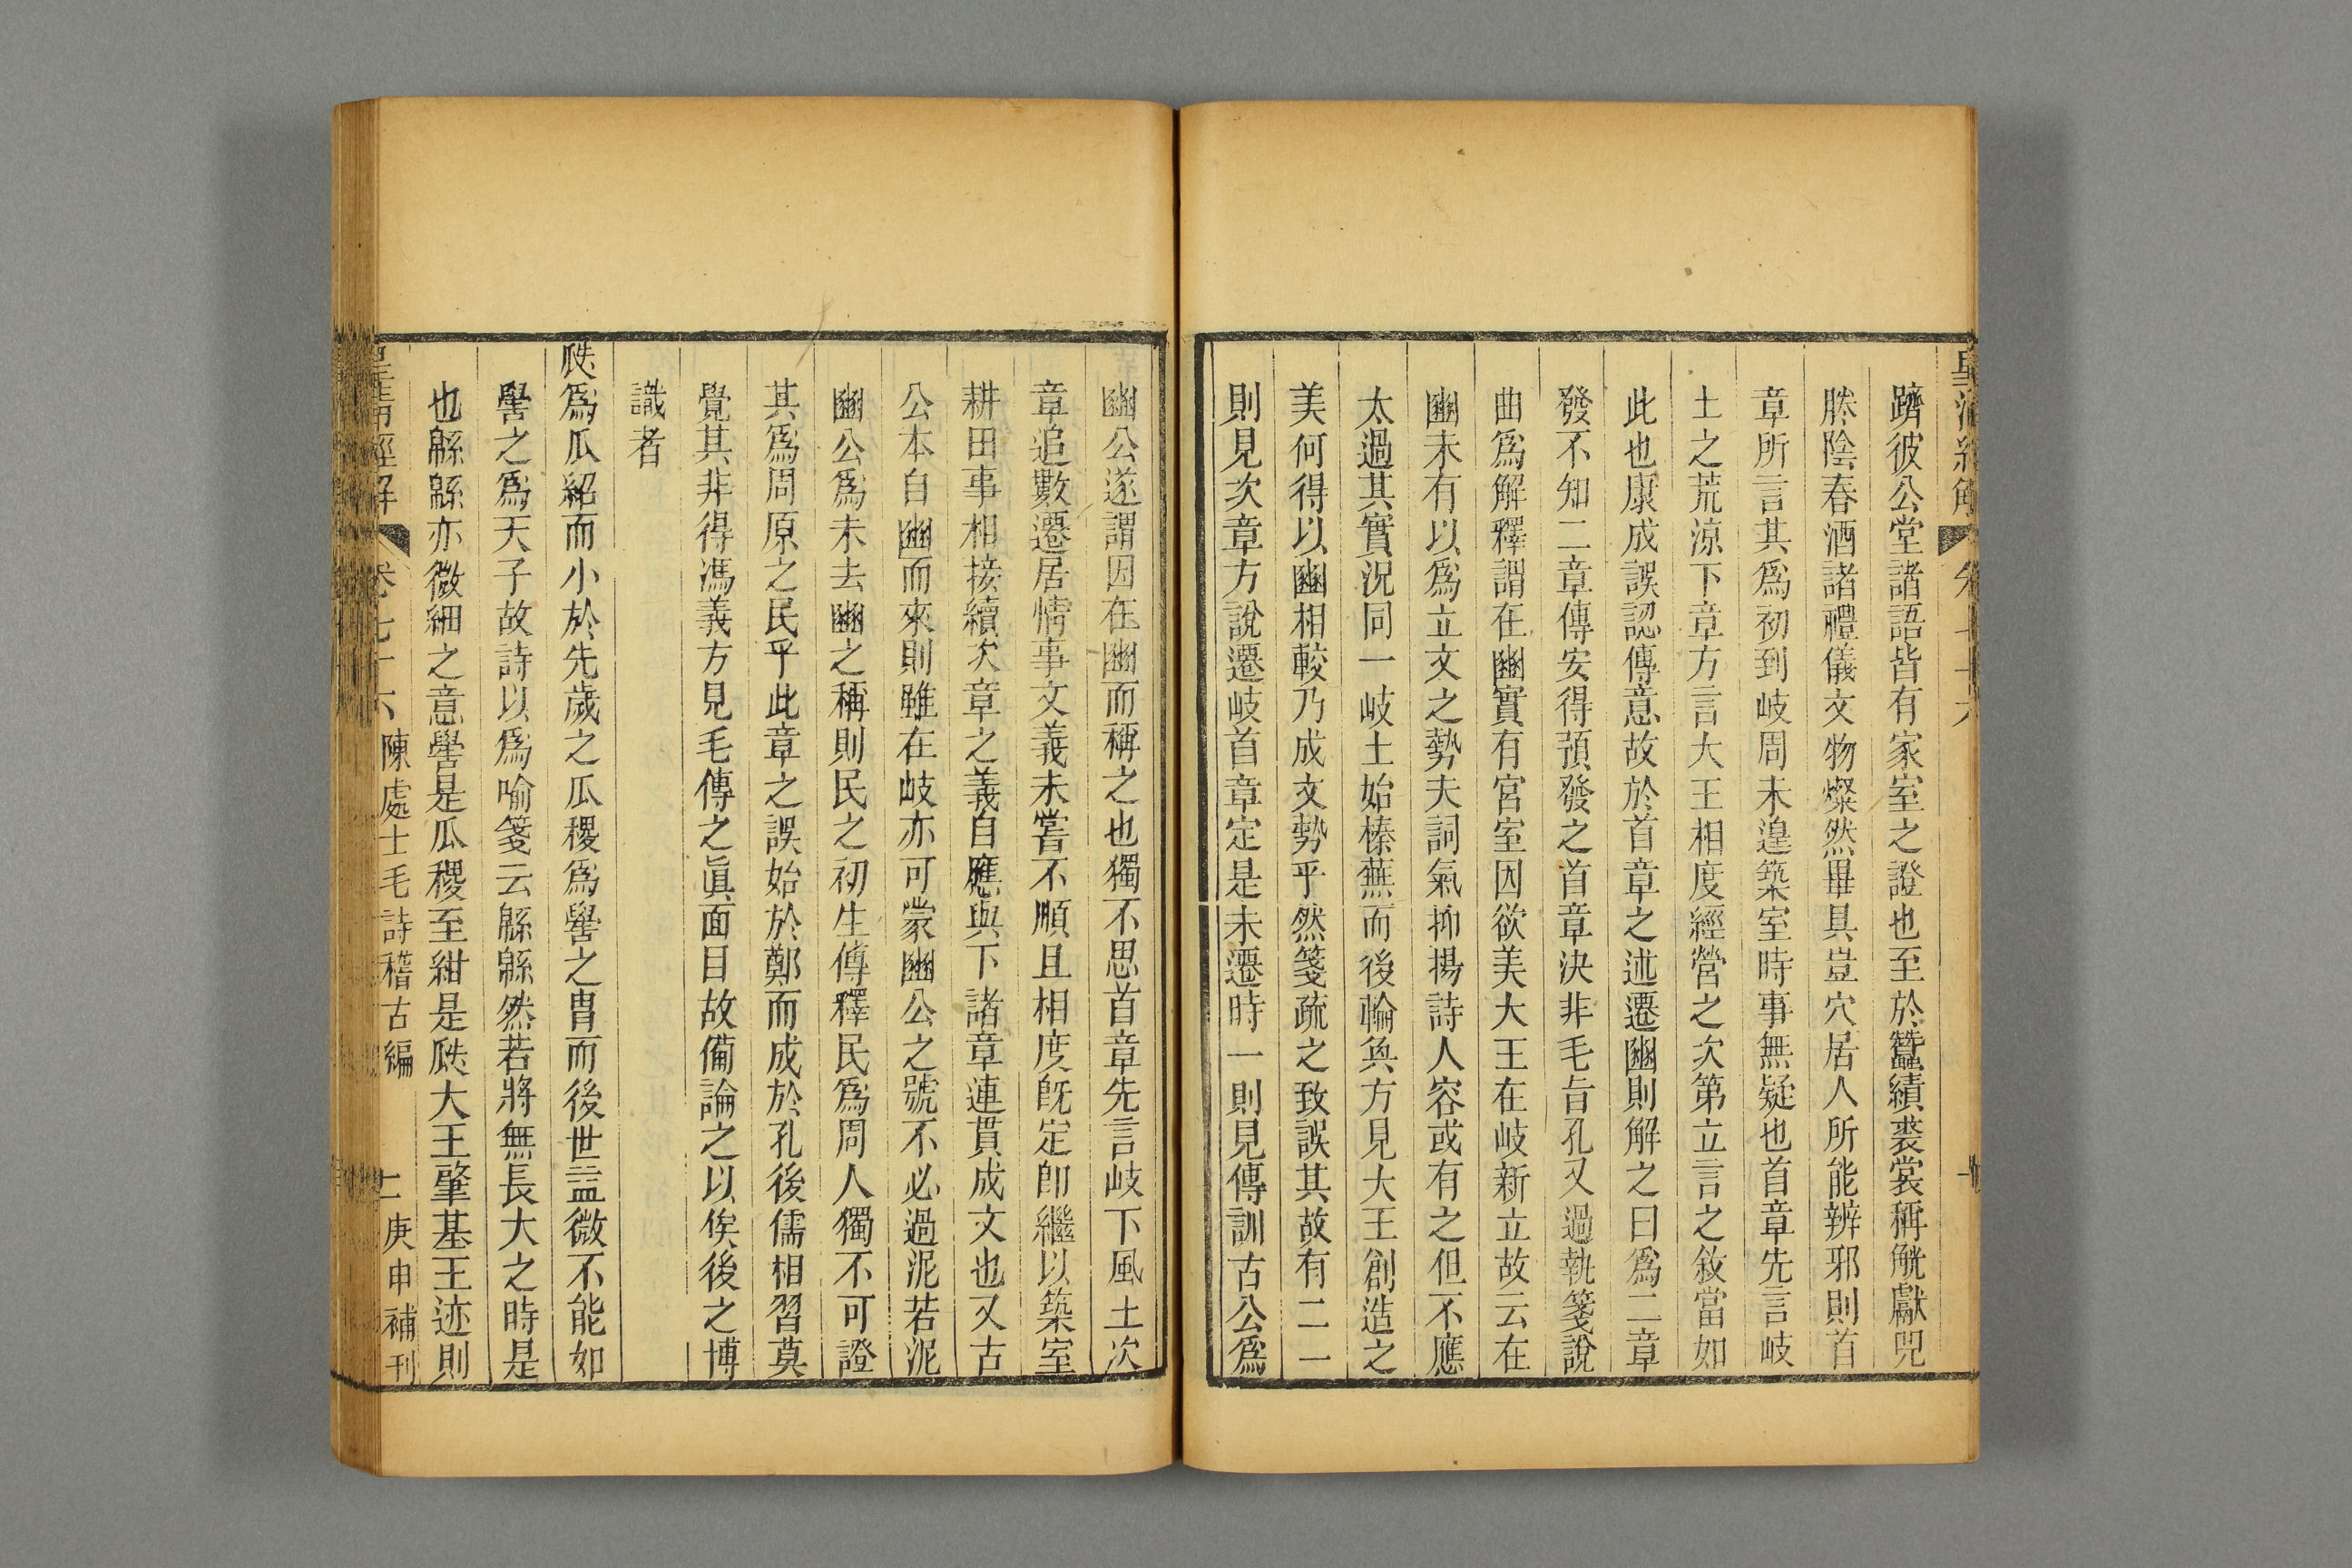 皇清經解 卷七十六
躋彼公堂諸語皆有家室之證也至於蠶績裘裳稱觥獻兕
塍陰春酒諸禮儀文物燦然畢具豈穴居人所能辨邪則首
章所言其為初到岐周未遑築室時事無疑也首章先言岐
土之荒涼下章方言大王相度經營之次第立言之敘當如
此也康成誤認傳意故於首章之述遷豳則解之曰為二章
發不知二章傳安得預發之首章決非毛旨孔又過執箋說
曲為解釋謂在豳實有宮室因欲美大王在岐新立故云在
豳未有以為立文之勢夫詞氣抑揚詩人容或有之但不應
太過其實況同一岐土始榛蕪而後輪奐方見大王創造之
美何得以豳相較乃成文勢乎然箋疏之致誤其故有二一
則見次章方說遷岐首章定是未遷時一則見傳訓古公為
豳公遂謂因在豳而稱之也獨不思首章先言岐下風土次
章追數遷居情事文義未嘗不順且相度既定卽繼以築室
耕田事相接續次章之義自應與下諸章連貫成文也又古
公本自豳而來則雖在岐亦可蒙豳公之號不必過泥若泥
豳公為未去豳之稱則民之初生傳釋民為周人獨不可證
其為周原之民乎此章之誤始於鄭而成於孔後儒相習莫
覺其非得馮義方見毛傳之眞面目故備論之以俟後之博
識者
瓞為瓜紹而小於先歲之瓜稷為嚳之胄而後世益微不能如
嚳之為天子故詩以為喻箋云緜緜然若將無長大之時是
也緜緜亦微細之意嚳是瓜稷至紺是瓞大王肇基王迹則
皇清經解 卷七十六 陳處士毛詩稽古編 二 庚申補刊